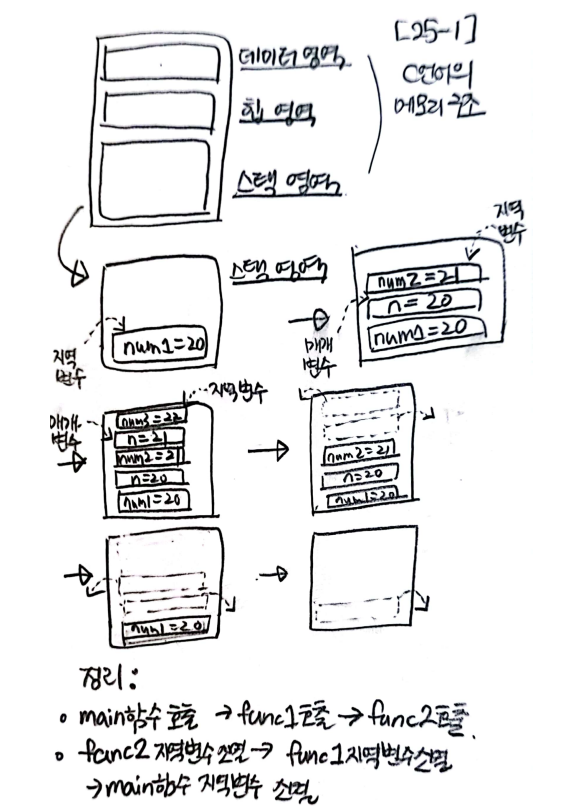 [25-1]
C언어의
메모리 구조
데이터 영역
힙 영역
스택 영역
스택 영역
지역
변수
num1=20
지역
변수
num2=21
n=20
num1=20
매개
변수
지역변수
매개
변수
num3=22
n=21
num2=21
n=20
num1=20
num2=21
n=20
num1=20
num1=20
정리:
main함수 호출 → func1호출 → func2호출.
func2 지역변수 소멸 → func1 지역변수 소멸
→ main함수 지역변수 소멸